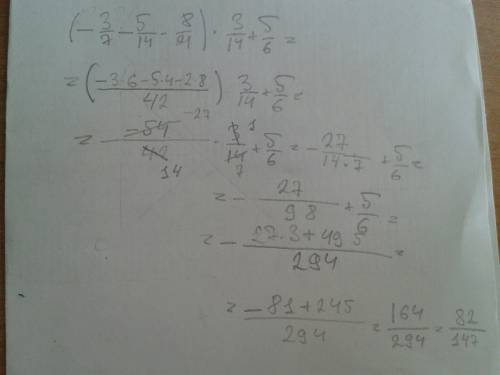 (-3/7 - 5/14 - 8/21) · 3/14 + 5/6 =
= ((-3·6-5·4-2·8)/42) 3/14 + 5/6 =
= -54 -27/42 14 · 3 1/14 7 + 5/6 = -27/(14·7) + 5/6 =
= -27/98 + 5/6 =
= -(27·3+49 5)/294 =
= (-81+245)/294 = 164/294 = 82/147